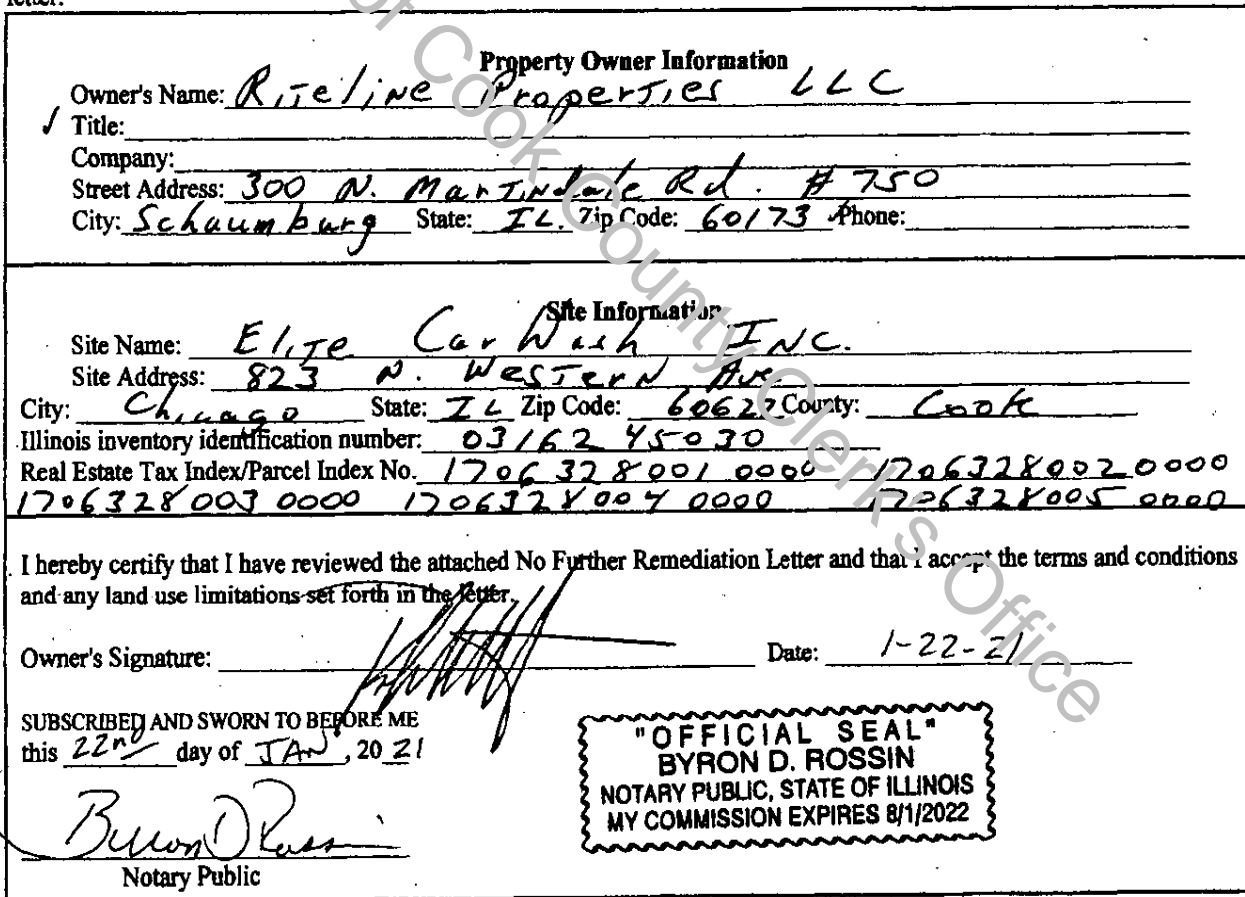 letter.
Property Owner Information
Owner's Name: Riteline Properties LLC
✓ Title:
Company:
Street Address: 300 N. Martindale Rd. # 750
City: Schaumburg State: IL. Zip Code: 60173 Phone:
Site Information
Site Name: Elite Car Wash INC.
Site Address: 823 N. Western Ave
City: Chicago State: IL Zip Code: 60622 County: Cook
Illinois inventory identification number: 0316245030
Real Estate Tax Index/Parcel Index No. 1706328001 0000 1706328002 0000
1706328003 0000 1706328004 0000 1706328005 0000
I hereby certify that I have reviewed the attached No Further Remediation Letter and that I accept the terms and conditions
and any land use limitations set forth in the letter.
Owner's Signature: Date: 1-22-21
SUBSCRIBED AND SWORN TO BEFORE ME
this 22nd day of JAN, 20 21
Byron D Rossin
Notary Public
"OFFICIAL SEAL"
BYRON D. ROSSIN
NOTARY PUBLIC, STATE OF ILLINOIS
MY COMMISSION EXPIRES 8/1/2022
of Cook County Clerk's Office